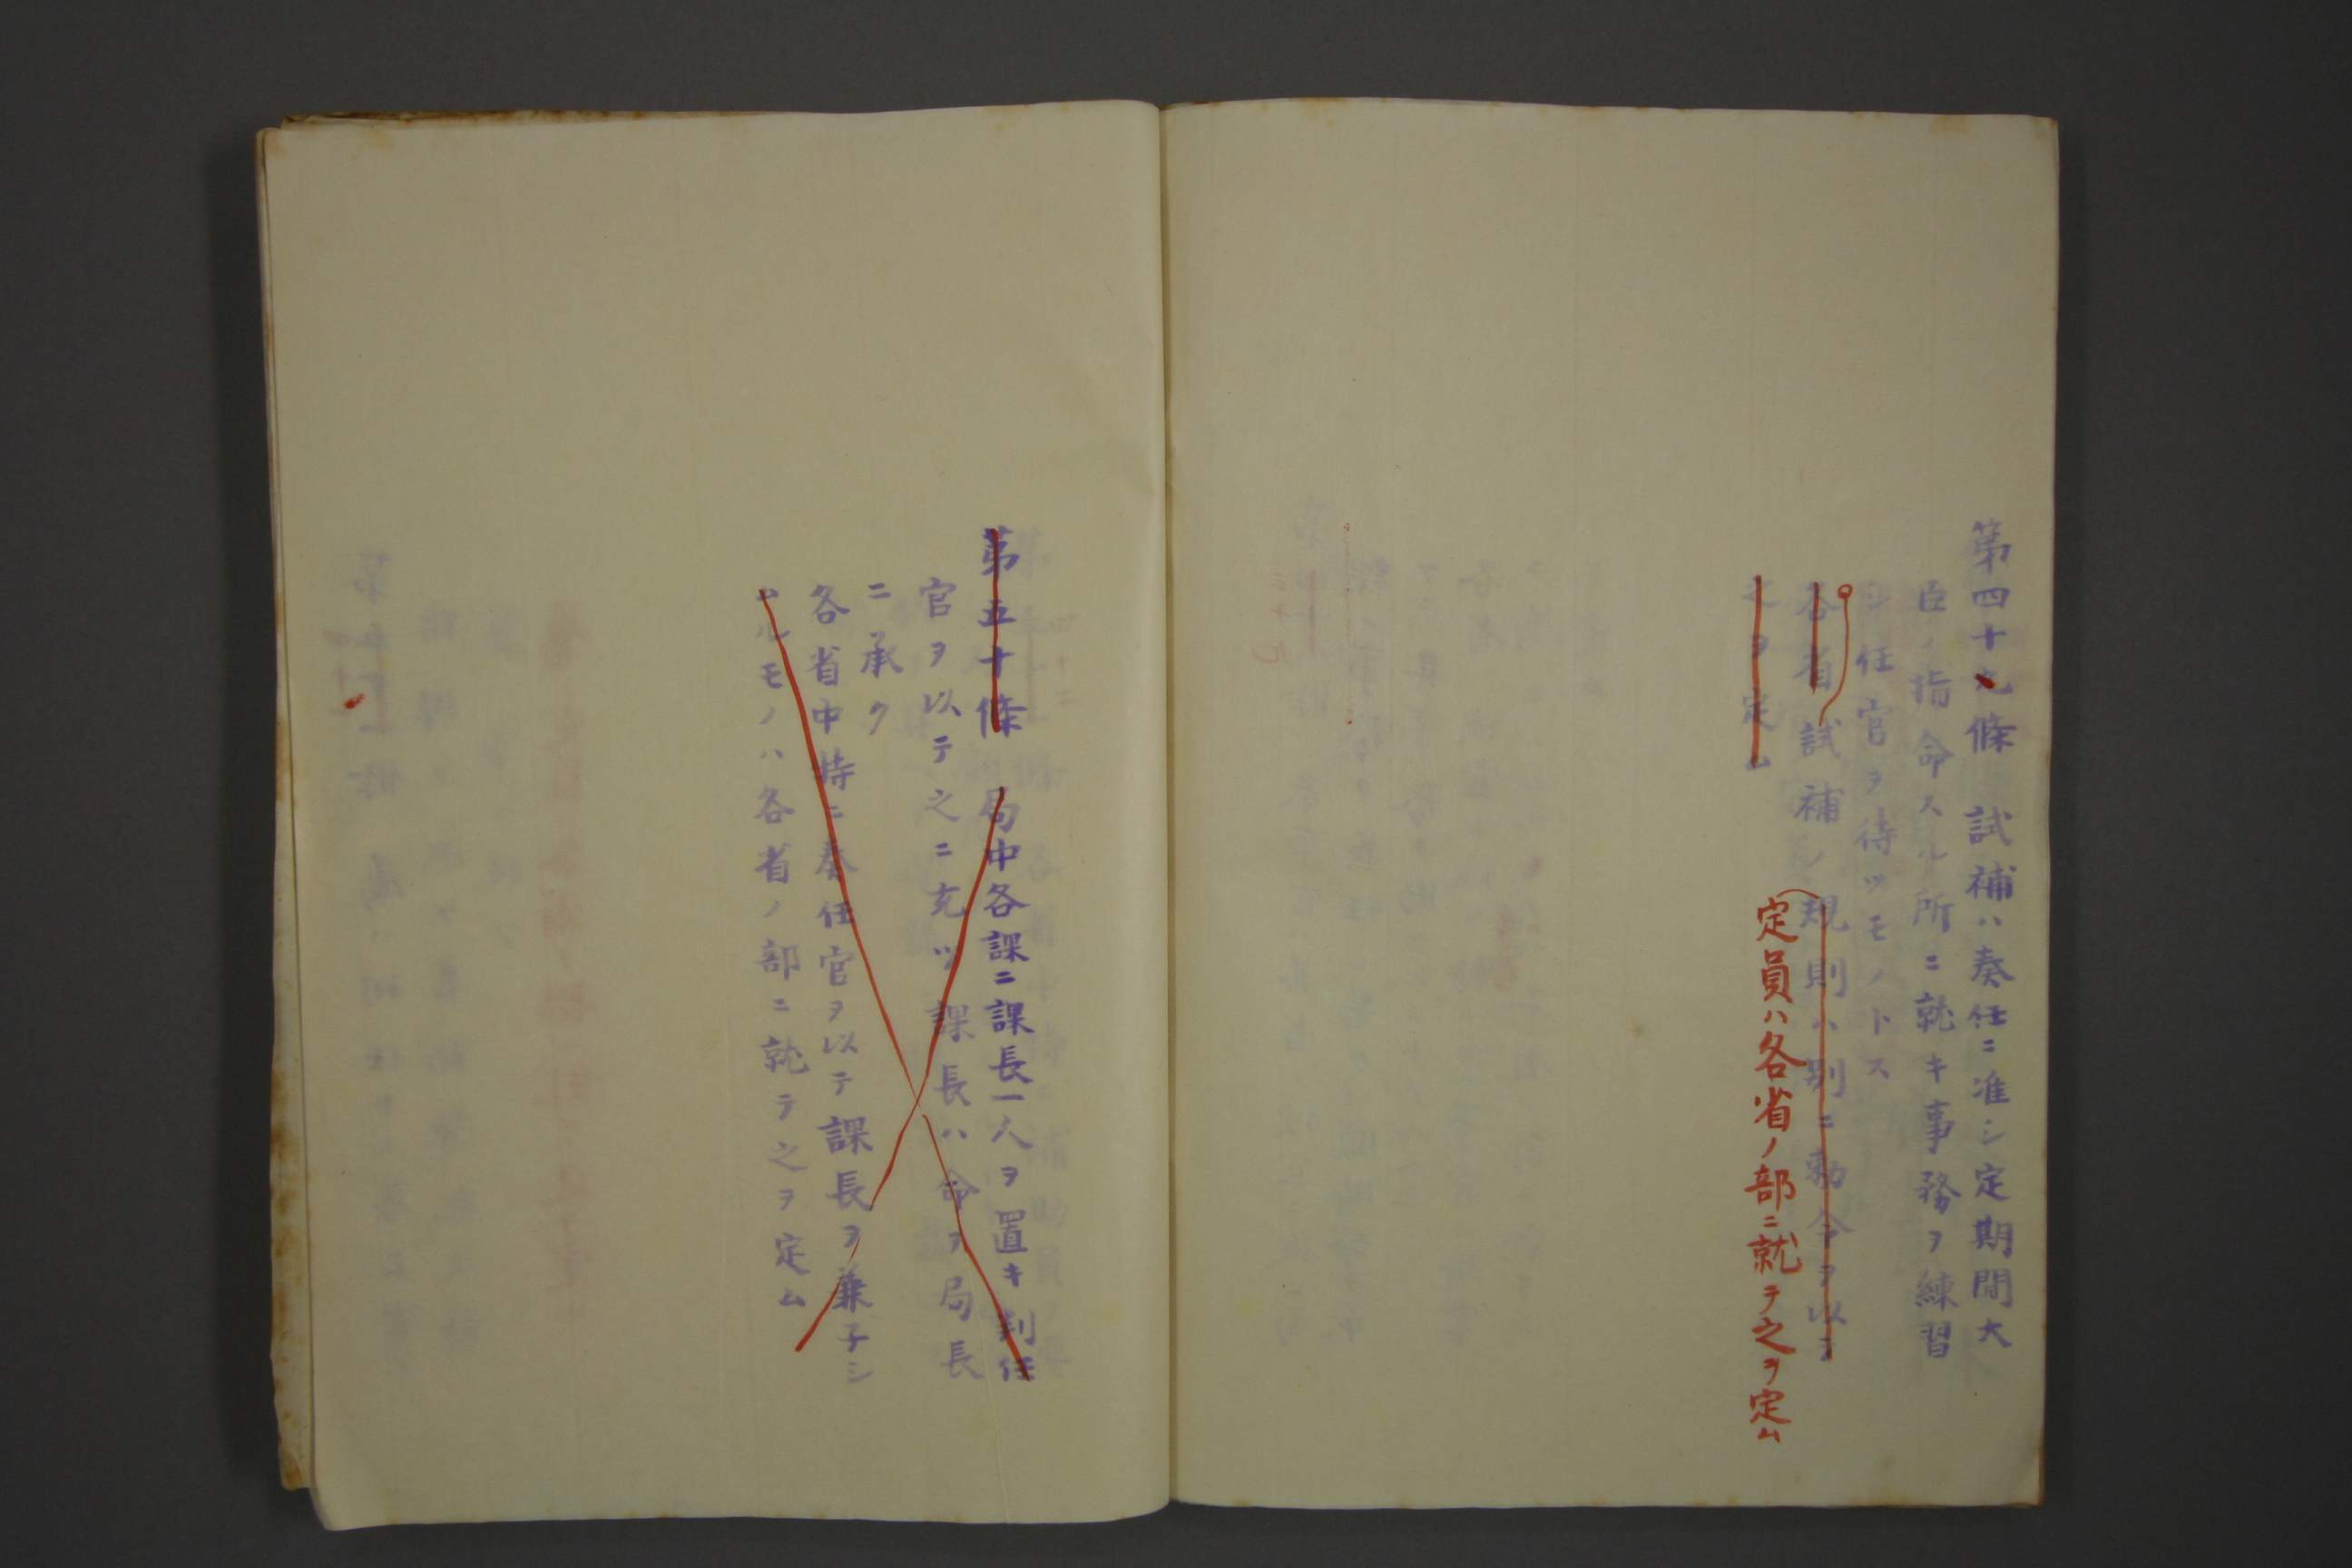 第四十九條　試補ハ奏任ニ准シ定期間大
臣ノ指命スル所ニ就キ事務ヲ練習
シ任官ヲ待ツモノトス
各省試補ノ規則ハ別ニ勅令ヲ以テ
之ヲ定ム
定員ハ各省ノ部ニ就テ之ヲ定ム
第五十條　局中各課ニ課長一人ヲ置キ判任
官ヲ以テ之ニ充ツ課長ハ命ヲ局長
ニ承ク
各省中特ニ奏任官ヲ以テ課長ヲ兼子シ
ムルモノハ各省ノ部ニ就テ之ヲ定ム